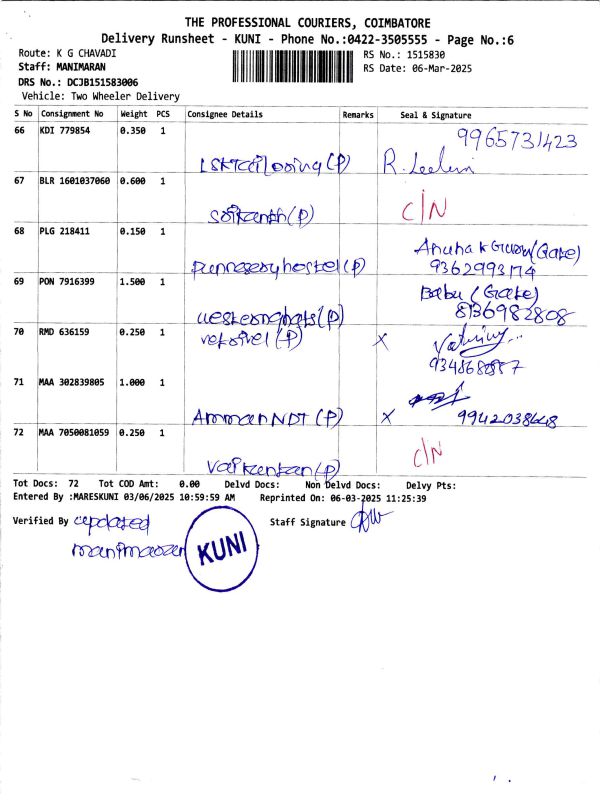 THE PROFESSIONAL COURIERS, COIMBATORE
Delivery Runsheet - KUNI - Phone No.:0422-3505555 - Page No.:6
Route: K G CHAVADI
RS No.: 1515830
Staff: MANIMARAN
RS Date: 06-Mar-2025
DRS No.: DCJB151583006
Vehicle: Two Wheeler Delivery
S No Consignment No Weight PCS Consignee Details Remarks Seal & Signature
66 KDI 779854 0.350 1 9965731423
(P) R.
67 BLR 1601037060 0.600 1
(P) C/N
68 PLG 218411 0.150 1
hostel (P) (Gate)
69 PON 7916399 1.500 1 Babu (Gate)
(P) 8136982808
70 RMD 636159 0.250 1 (P) X
71 MAA 302839805 1.000 1
Amman NDT (P) X 9942038648
72 MAA 7050081059 0.250 1
(P) C/N
Tot Docs: 72 Tot COD Amt: 0.00 Delvd Docs: Non Delvd Docs: Delvy Pts:
Entered By :MARESKUNI 03/06/2025 10:59:59 AM Reprinted On: 06-03-2025 11:25:39
Verified By updated Staff Signature
KUNI